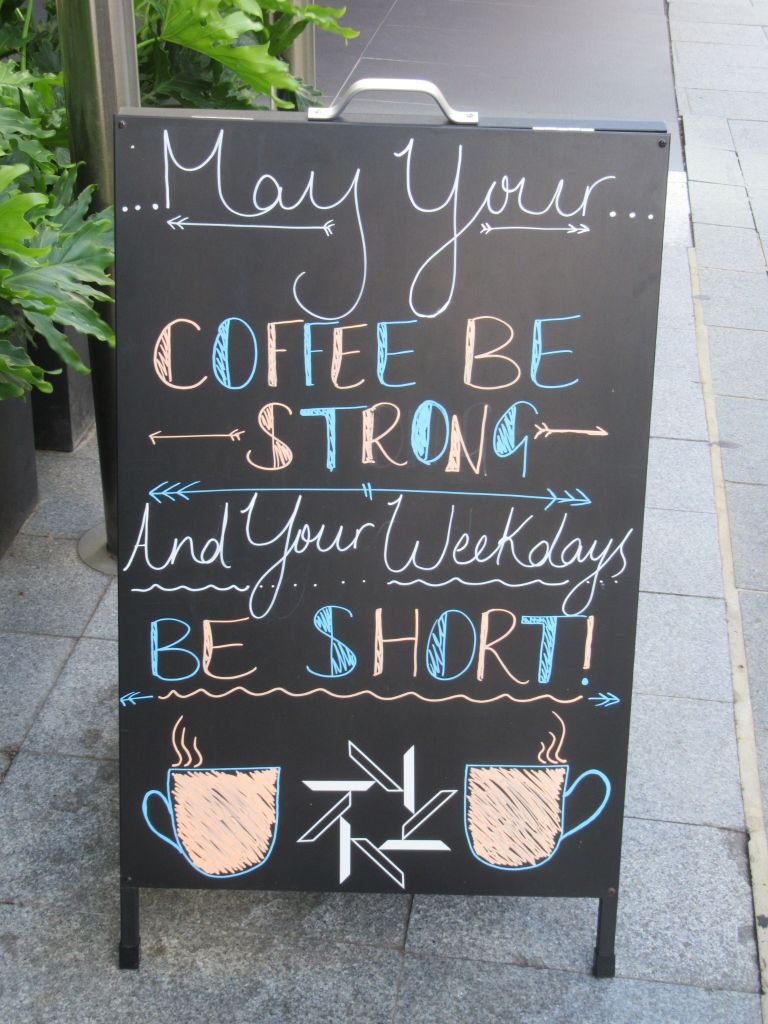 ...May Your...
COFFEE BE
STRONG
And Your Weekdays
BE SHORT!